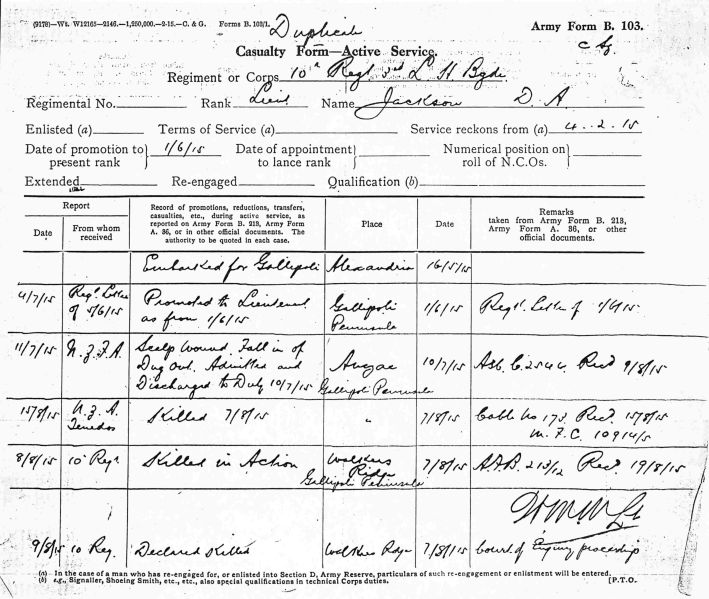 (9178)—Wt. W12165—2146.—1,250,000.—2-15.—C. & G. Forms B. 103/1.
Duplicate
Army Form B. 103.
Casualty Form—Active Service.
Regiment or Corps 10th Regt 3rd L H Bgde
Regimental No. Rank Lieut Name Jackson D A
Enlisted (a) Terms of Service (a) Service reckons from (a) 4.2.15
Date of promotion to present rank } 1/6/15 Date of appointment to lance rank } Numerical position on roll of N.C.Os. }
Extended Re-engaged Qualification (b)
Report
Date
From whom received
Record of promotions, reductions, transfers, casualties, etc., during active service, as reported on Army Form B. 213, Army Form A. 36, or in other official documents. The authority to be quoted in each case.
Place
Date
Remarks taken from Army Form B. 213, Army Form A. 36, or other official documents.
Embarked for Gallipoli Alexandria 16/5/15
4/7/15 Regt Letter of 5/6/15 Promoted to Lieutenant as from 1/6/15 Gallipoli Peninsula 1/6/15 Regtl. Letter of
11/7/15 N.Z.F.A. Scalp Wound. Fall in of Dug out. Admitted and Discharged to Duty 10/7/15 Anzac Gallipoli Peninsula 10/7/15 Recd 9/8/15
15/8/15 N.Z.A. Tenedos Killed 7/8/15 " 7/8/15 Cable No 173. Recd. 15/8/15
8/8/15 10 Regt Killed in Action Walkers Ridge Gallipoli Peninsula 7/8/15 213/12 Recd 19/8/15
9/8/15 10 Reg. Declared Killed Walkers Ridge 7/8/15 Court of Enquiry proceedings
(a) In the case of a man who has re-engaged for, or enlisted into Section D, Army Reserve, particulars of such re-engagement or enlistment will be entered.
(b) e.g., Signaller, Shoeing Smith, etc., etc., also special qualifications in technical Corps duties. [P.T.O.